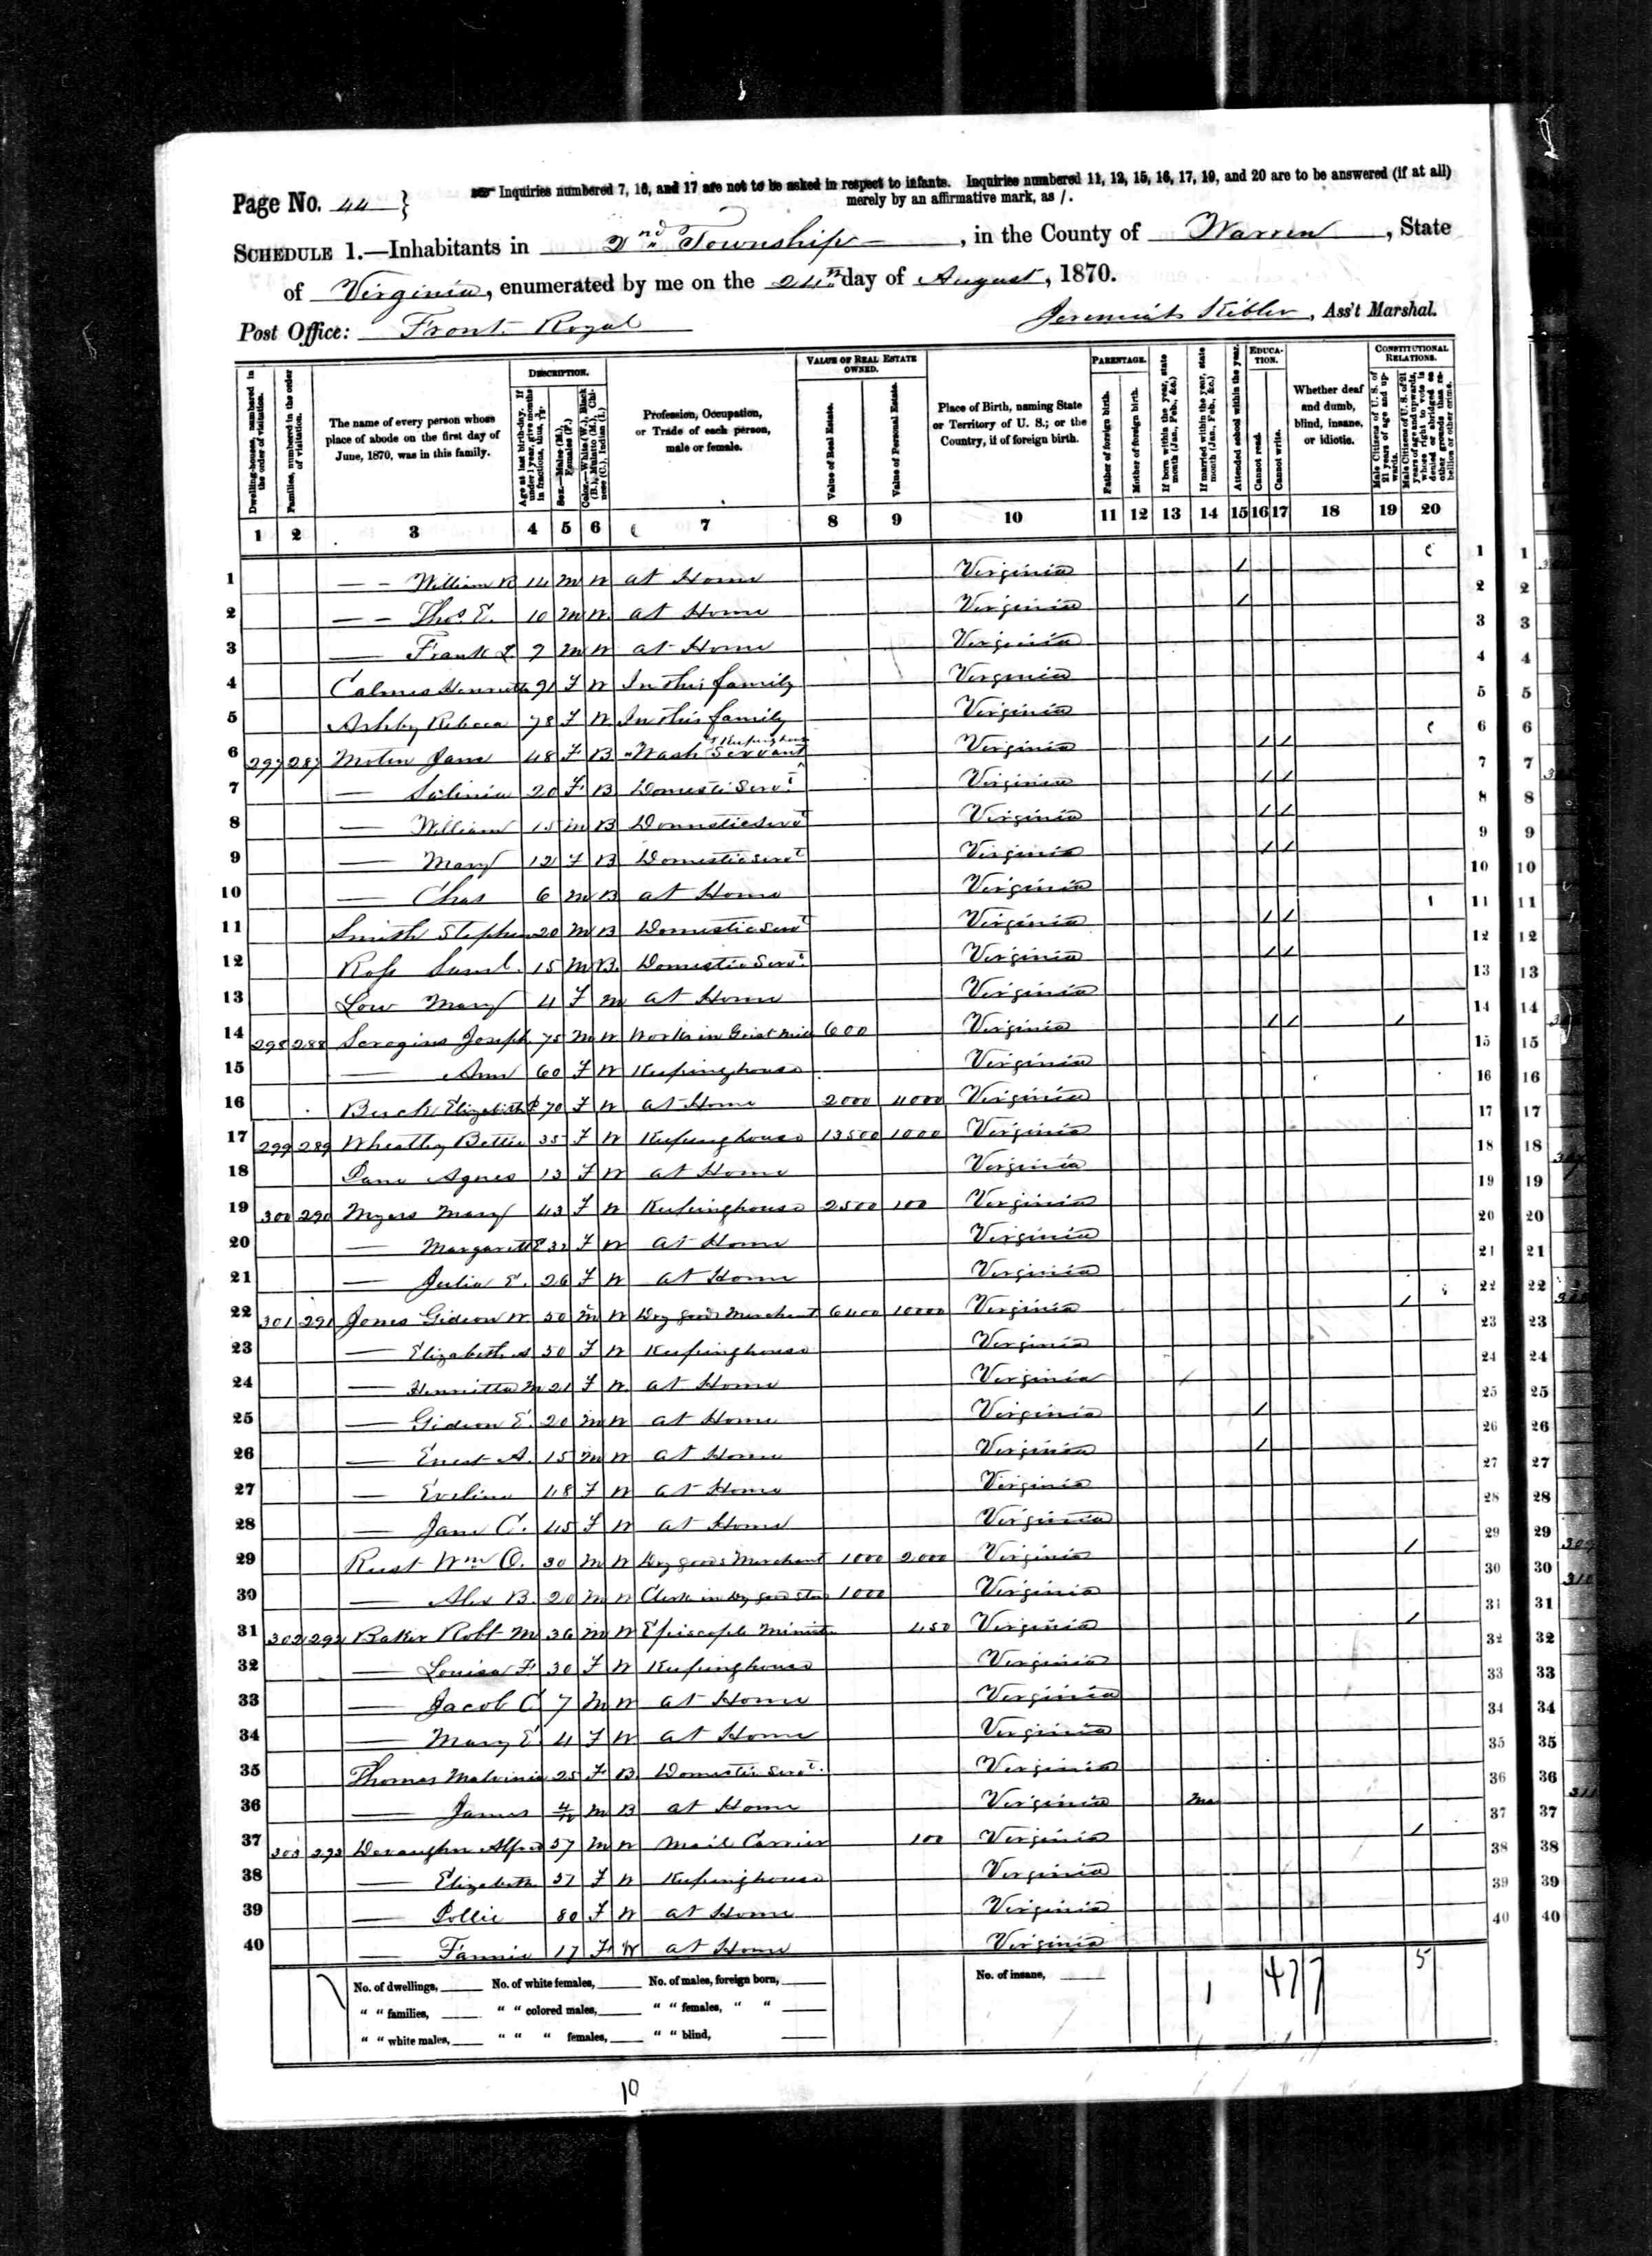 Page No. 44 }
Inquiries numbered 7, 16, and 17 are not to be asked in respect to infants. Inquiries numbered 11, 12, 15, 16, 17, 19, and 20 are to be answered (if at all)
merely by an affirmative mark, as /.
SCHEDULE 1.—Inhabitants in 2nd Township, in the County of Warren, State
of Virginia, enumerated by me on the 24th day of August, 1870.
Post Office: Front Royal
Jeremiah Kibler, Ass't Marshal.
DESCRIPTION. VALUE OF REAL ESTATE OWNED. PARENTAGE. EDUCATION. CONSTITUTIONAL RELATIONS.
Dwelling-houses, numbered in the order of visitation. Families, numbered in the order of visitation. The name of every person whose place of abode on the first day of June, 1870, was in this family. Age at last birth-day. If under 1 year, give months in fractions, thus, Sex.—Males (M.), Females (F.) Color.—White (W.), Black (B.), Mulatto (M.), Chinese (C.), Indian (I.) Profession, Occupation, or Trade of each person, male or female. Value of Real Estate. Value of Personal Estate. Place of Birth, naming State or Territory of U. S.; or the Country, if of foreign birth. Father of foreign birth. Mother of foreign birth. If born within the year, state month (Jan., Feb., &c.) If married within the year, state month (Jan., Feb., &c.) Attended school within the year. Cannot read. Cannot write. Whether deaf and dumb, blind, insane, or idiotic. Male Citizens of U. S. of 21 years of age and upwards. Male Citizens of U. S. of 21 years of age and upwards, whose right to vote is denied or abridged on other grounds than rebellion or other crime.
1 2 3 4 5 6 7 8 9 10 11 12 13 14 15 16 17 18 19 20
1 — — William R 14 M W at Home Virginia / 1 1
2 — — Thos. E. 10 M W at Home Virginia / 2 2
3 — Frank L 7 M W at Home Virginia 3 3
4 Calmes Henrietta 91 F W In this family Virginia 4 4
5 Ashby Rebecca 78 F W In this family Virginia 5 5
6 297 287 Jane 48 F B Wash Servant Virginia / / 6 6
7 — 20 F B Domestic Servt Virginia / / 7 7
8 — William 15 M B Domestic Servt Virginia / / 8 8
9 — Mary 12 F B Domestic Servt Virginia / / 9 9
10 — Chas 6 M B at Home Virginia 10 10
11 Smith Stephen 20 M B Domestic Servt Virginia / / 11 11
12 Ross Saml. 15 M B Domestic Servt Virginia / / 12 12
13 Low Mary 4 F M at Home Virginia 13 13
14 298 288 Scrogins Joseph 75 M W Works in Grist Mill 600 Virginia / / / 14 14
15 — Ann 60 F W Keeping house Virginia 15 15
16 Buck Elizabeth 70 F W at Home 2000 4000 Virginia 16 16
17 299 289 Wheatley Bettie 35 F W Keeping house 13500 1000 Virginia 17 17
18 Agnes 13 F W at Home Virginia 18 18
19 300 290 Myers Mary 43 F W Keeping house 2500 100 Virginia 19 19
20 — Margarett E 32 F W at Home Virginia 20 20
21 — Julia E. 26 F W at Home Virginia 21 21
22 301 291 Jones Gideon W. 50 M W Dry goods Merchant 6400 10000 Virginia / 22 22
23 — Elizabeth A 50 F W Keeping house Virginia 23 23
24 — Henrietta M 21 F W at Home Virginia / 24 24
25 — Gideon E. 20 M W at Home Virginia / 25 25
26 — Ernest A. 15 M W at Home Virginia / 26 26
27 — Evelina 48 F W at Home Virginia 27 27
28 — Jane C. 45 F W at Home Virginia 28 28
29 Rust Wm O. 30 M W Dry goods Merchant 1000 2000 Virginia / 29 29
30 — Alex B. 20 M W Clerk in Dry good Store 1000 Virginia 30 30
31 302 292 Baker Robt M 36 M W Episcople Minister 450 Virginia / 31 31
32 — Louisa F 30 F W Keeping house Virginia 32 32
33 — Jacob C 7 M W at Home Virginia 33 33
34 — Mary E 4 F W at Home Virginia 34 34
35 Thomas Malvinia 25 F B Domestic Servt. Virginia 35 35
36 — James 4/12 M B at Home Virginia 36 36
37 303 293 Devaughn Alfred 57 M W Mail Carrier 100 Virginia / 37 37
38 — Elizabeth 57 F W Keeping house Virginia 38 38
39 — Pollie 80 F W at Home Virginia 39 39
40 — Fannie 17 F W at Home Virginia 40 40
No. of dwellings, No. of white females, No. of males, foreign born, No. of insane, 1 5
" " families, " " colored males, " " females, " "
" " white males, " " " females, " " blind,
10